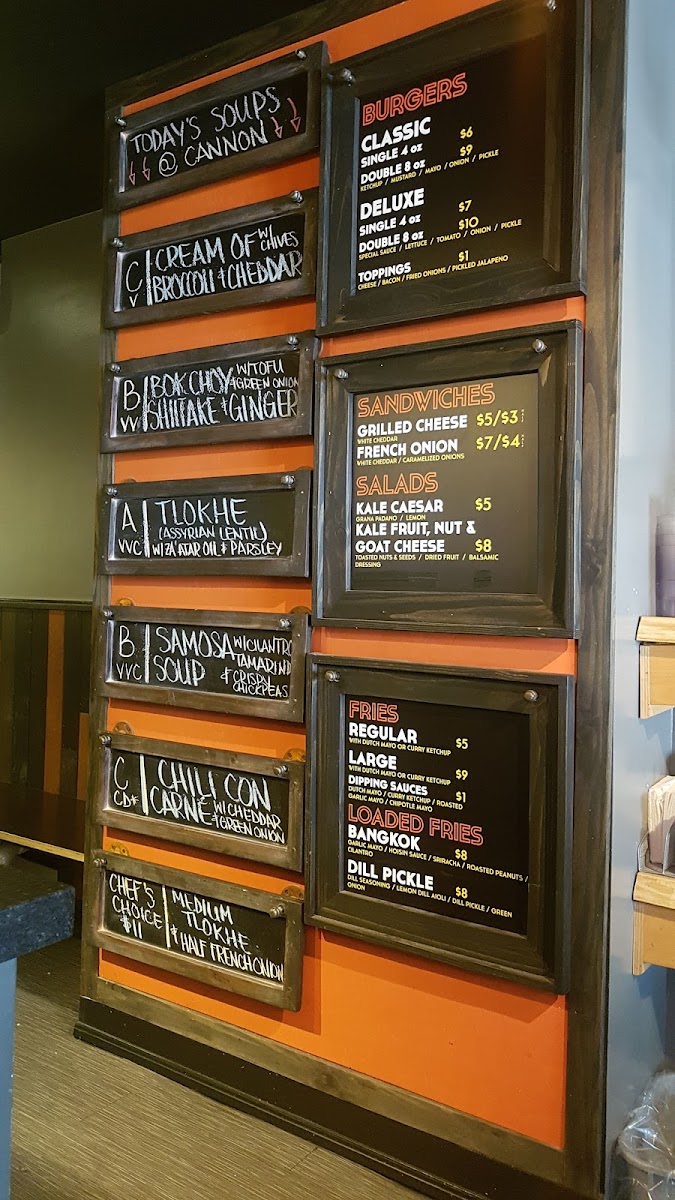 TODAY'S SOUPS
@ CANNON
C
V
CREAM OF W/ CHIVES
BROCCOLI & CHEDDAR
B
VV
BOK CHOY W/ TOFU & GREEN ONION
SHIITAKE & GINGER
A
VVC
TLOKHE
(ASSYRIAN LENTIL)
W/ ZA'ATAR OIL & PARSLEY
B
VVC
SAMOSA W/ CILANTRO
SOUP TAMARIND
& CRISPY
CHICKPEAS
C
CHILI CON
CARNE W/ CHEDDAR
& GREEN ONION
CHEF'S
CHOICE
$11
MEDIUM
TLOKHE
& HALF FRENCH ONION
BURGERS
CLASSIC
SINGLE 4 oz $6
DOUBLE 8 oz $9
KETCHUP / MUSTARD / MAYO / ONION / PICKLE
DELUXE
SINGLE 4 oz $7
DOUBLE 8 oz $10
SPECIAL SAUCE / LETTUCE / TOMATO / ONION / PICKLE
TOPPINGS $1
CHEESE / BACON / FRIED ONIONS / PICKLED JALAPENO
SANDWICHES
GRILLED CHEESE $5/$3
WHITE CHEDDAR
FRENCH ONION $7/$4
WHITE CHEDDAR / CARAMELIZED ONIONS
SALADS
KALE CAESAR $5
GRANA PADANO / LEMON
KALE FRUIT, NUT &
GOAT CHEESE $8
TOASTED NUTS & SEEDS / DRIED FRUIT / BALSAMIC
DRESSING
FRIES
REGULAR $5
WITH DUTCH MAYO OR CURRY KETCHUP
LARGE $9
WITH DUTCH MAYO OR CURRY KETCHUP
DIPPING SAUCES $1
DUTCH MAYO / CURRY KETCHUP / ROASTED
GARLIC MAYO / CHIPOTLE MAYO
LOADED FRIES
BANGKOK $8
GARLIC MAYO / HOISIN SAUCE / SRIRACHA / ROASTED PEANUTS /
CILANTRO
DILL PICKLE $8
DILL SEASONING / LEMON DILL AIOLI / DILL PICKLE / GREEN
ONION